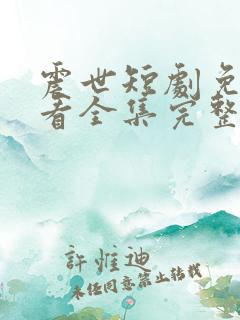 震世短劇免
看全集完整
許惟迪
未经同意禁止转载